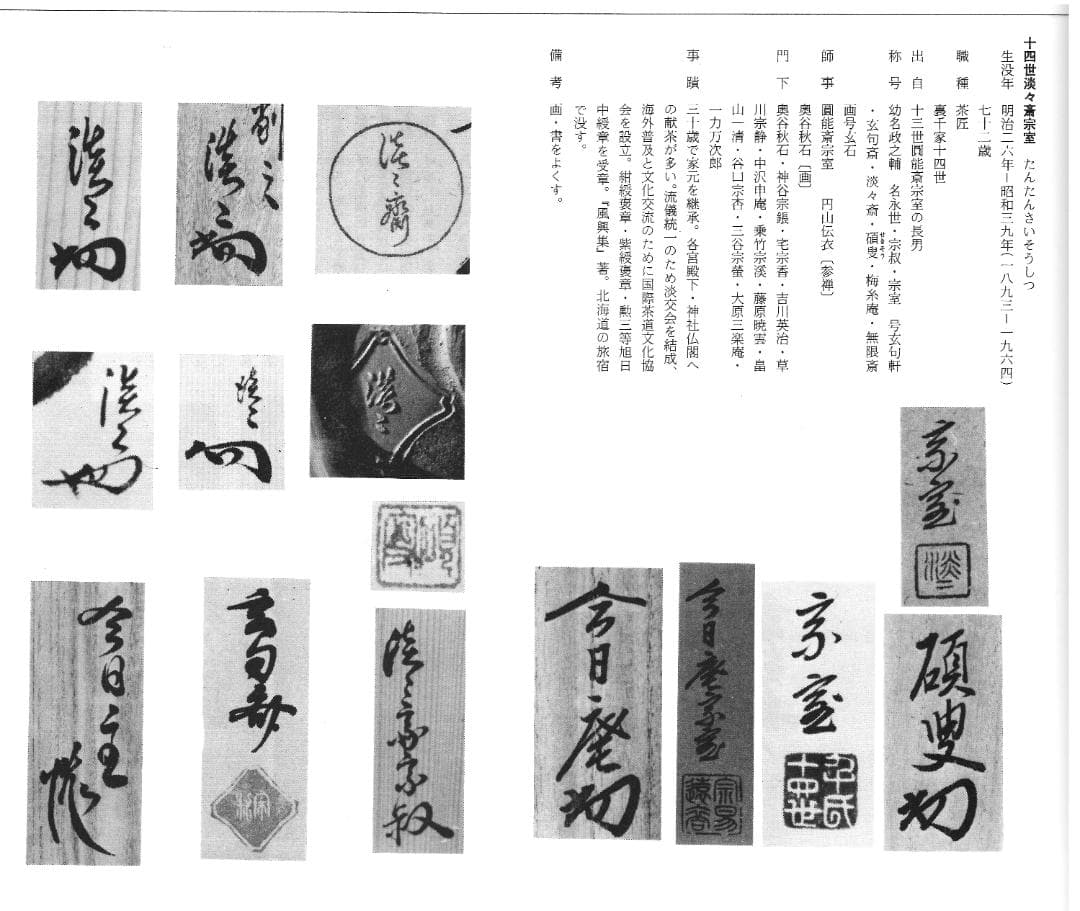 十四世淡々斎宗室 たんたんさいそうしつ
生没年 明治二六年ー昭和三九年(一八九三ー一九六四)
七十二歳
職種 茶匠
裏千家十四世
出自 十三世圓能斎宗室の長男
称号 幼名政之輔 名永世・宗叔・宗室 号玄句軒
・玄句斎・淡々斎・碩叟・梅糸庵・無限斎
せきそう
画号玄石
師事 圓能斎宗室 円山伝衣〔参禅〕
奥谷秋石〔画〕
門下 奥谷秋石・神谷宗・宅宗香・吉川英治・草
川宗静・中沢申庵・乗竹宗溪・藤原暁雲・畠
山一清・谷口宗杏・三谷宗螢・大原三楽庵・
一力万次郎
事蹟 三十歳で家元を継承。各宮殿下・神社仏閣へ
の献茶が多い。流儀統一のため淡交会を結成、
海外普及と文化交流のために国際茶道文化協
会を設立。紺綬褒章・紫綬褒章・勲三等旭日
中綬章を受章。『風興集』著。北海道の旅宿
で没す。
備考 画・書をよくす。
宗室
淡々
碩叟
宗室
千氏
十四世
今日庵宗室
宗易
遠裔
今日庵
淡々斎
淡々
碩叟
淡々斎宗叔
淡々
淡々
玄句斎
宗叔
淡々
淡々
今日主